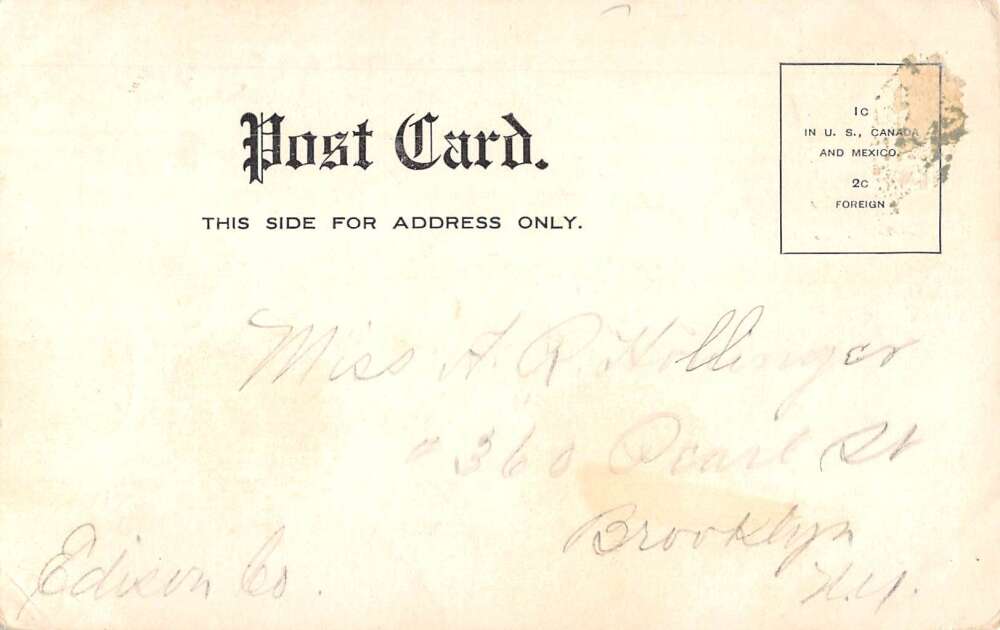 Post Card.
THIS SIDE FOR ADDRESS ONLY.
1c
IN U. S., CANADA
AND MEXICO.
2c
FOREIGN
Miss A. R. Hollinger
360 Pearl St
Brooklyn
N.Y.
Edison Co.